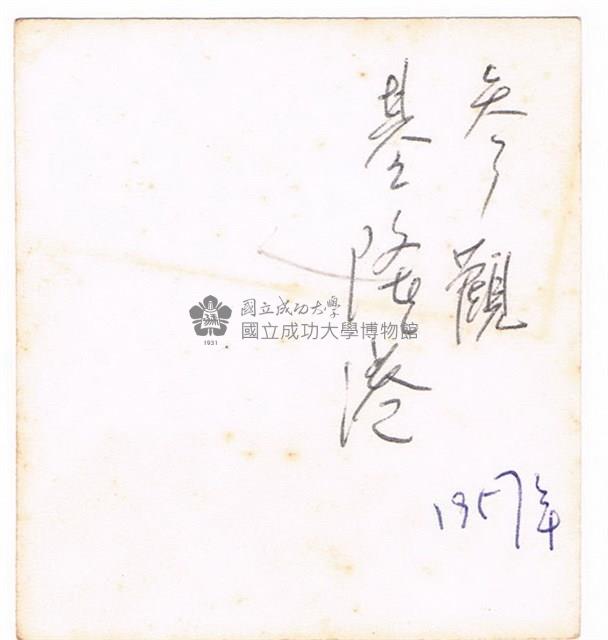 參觀
基隆港
1957年
國立成功大學
國立成功大學博物館
1931